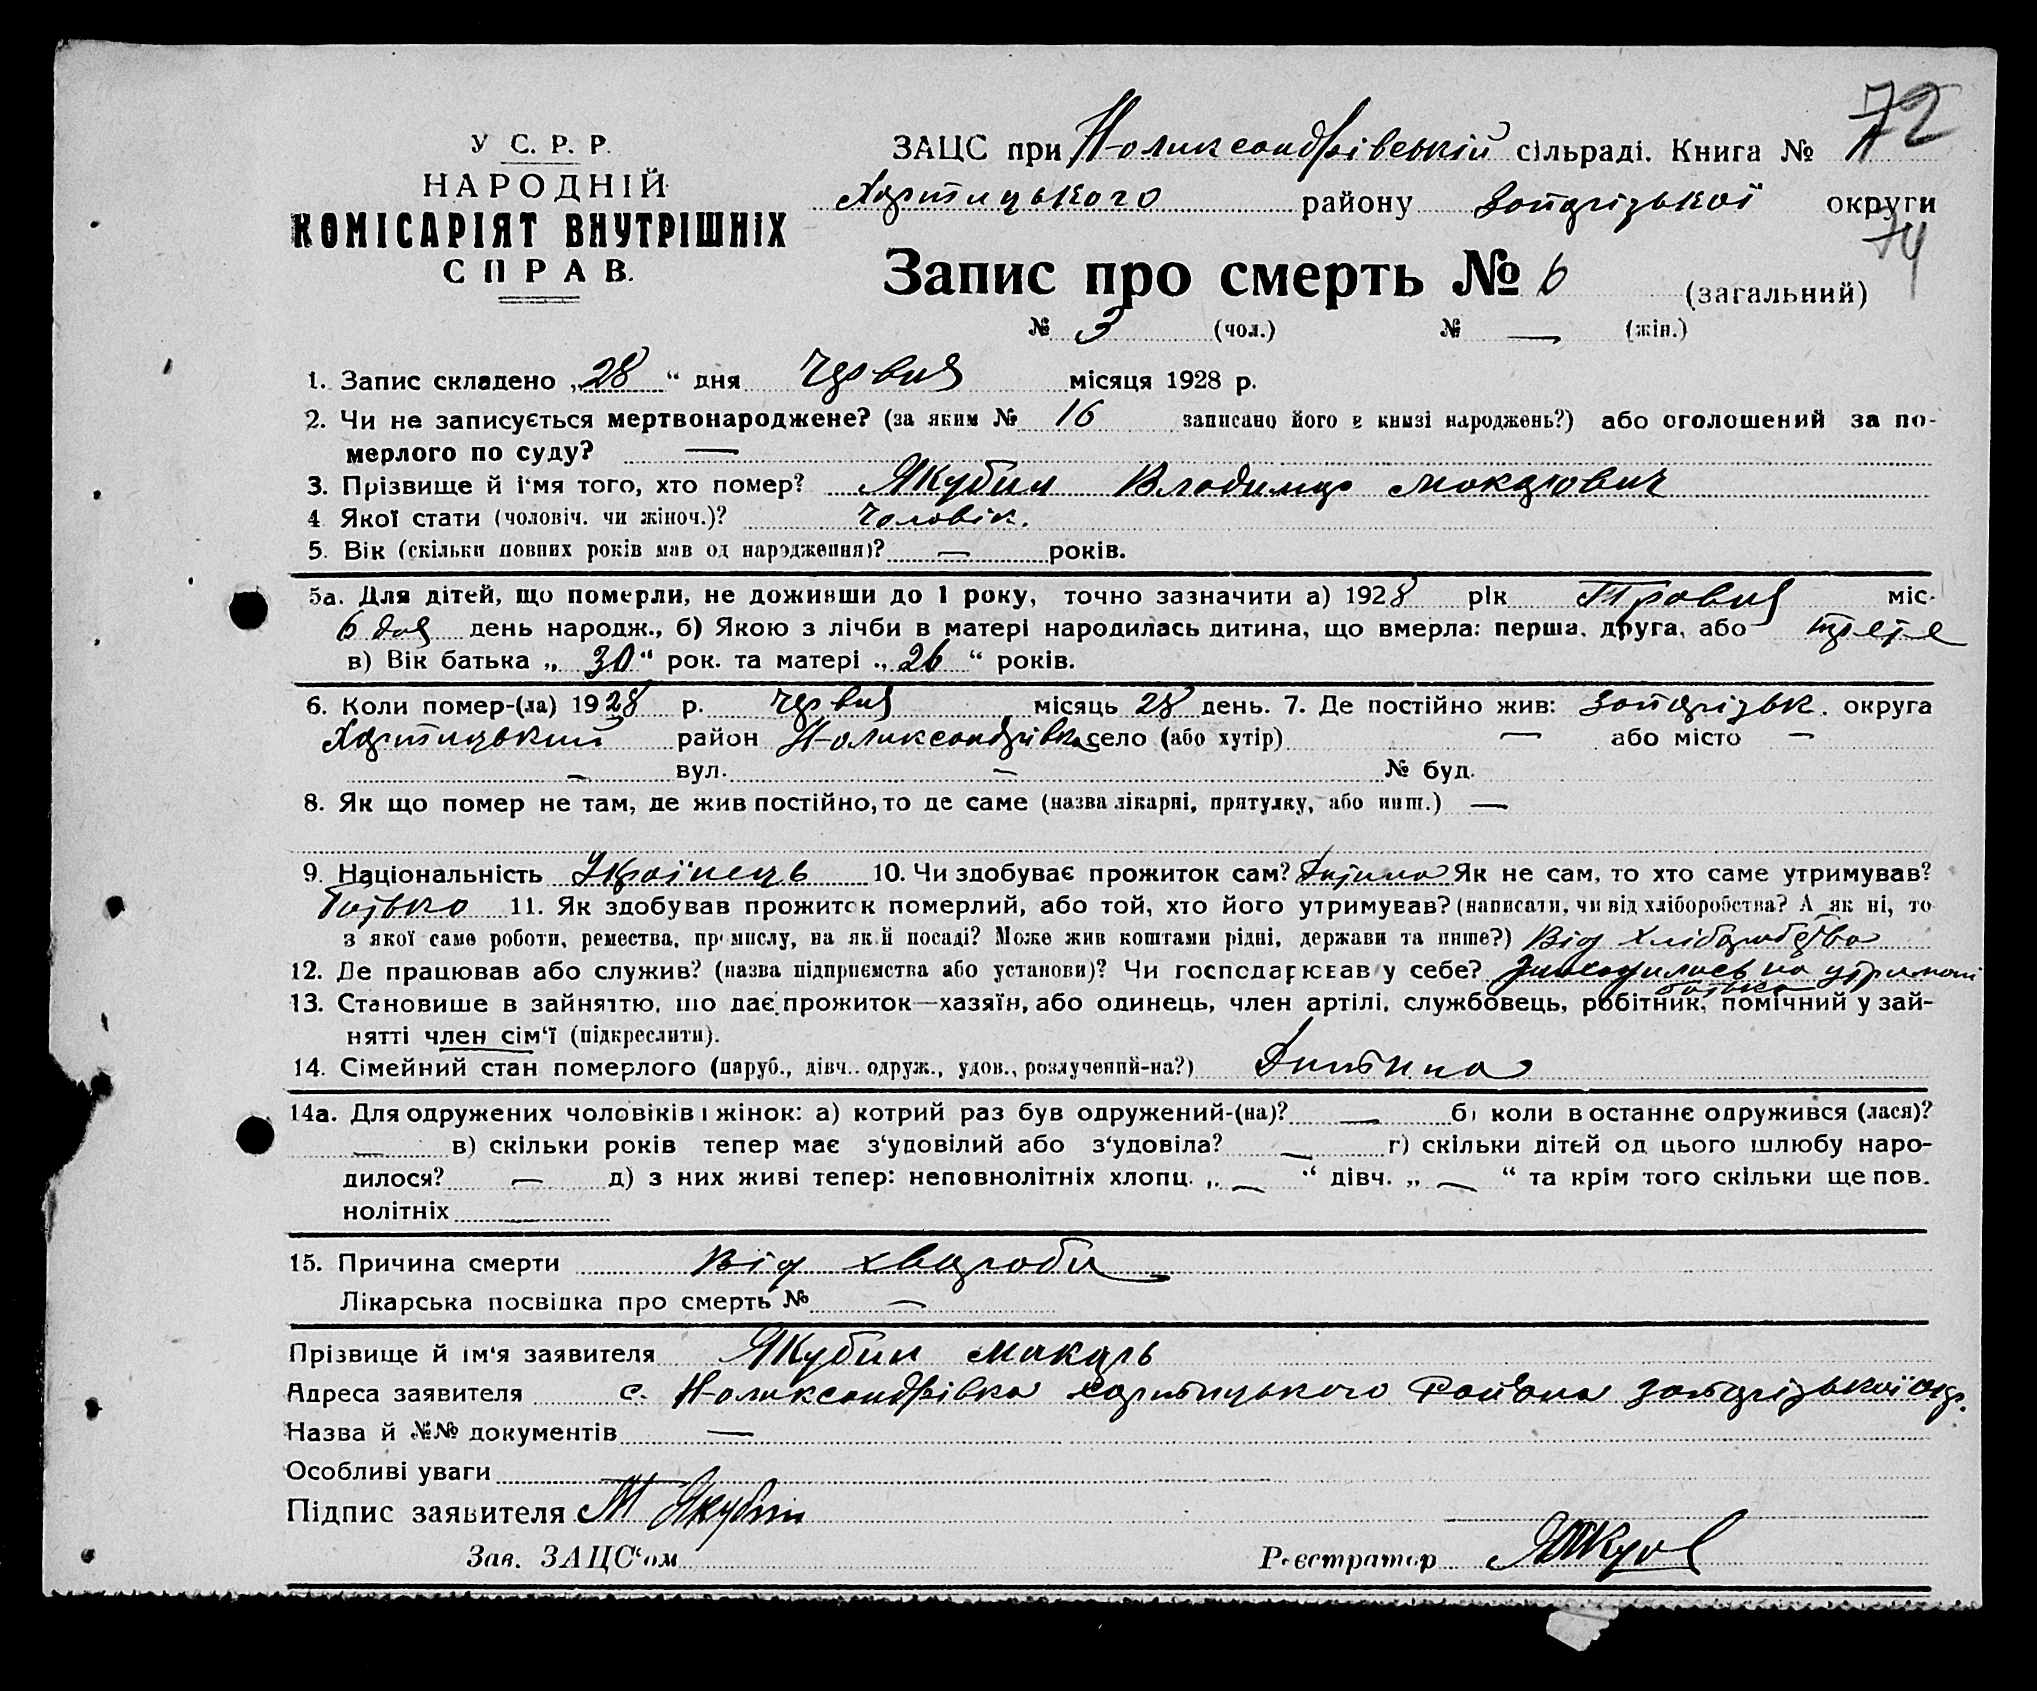 72
У С. Р. Р.
НАРОДНІЙ
КОМІСАРІЯТ ВНУТРІШНІХ
СПРАВ.
ЗАЦС при Н-олександрівській сільраді. Книга №
Хортицького району Запорізької округи
74
Запис про смерть № 6 (загальний)
№ 3 (чол.) № — (жін.)
1. Запис складено „28“ дня червня місяця 1928 р.
2. Чи не записується мертвонароджене? (за яким № 16 записано його в книзі народжень?) або оголошений за по-
мерлого по суду? —
3. Прізвище й ім'я того, хто помер? Якубин Владимир Макарович
4 Якої стати (чоловіч. чи жіноч.)? Чоловік.
5. Вік (скільки повних років мав од народження)? — років.
5а. Для дітей, що померли, не доживши до 1 року, точно зазначити а) 1928 рік Травня міс.
6 дня день народж., б) Якою з лічби в матері народилась дитина, що вмерла: перша, друга, або третя
в) Вік батька „30“ рок. та матері „26“ років.
6. Коли помер-(ла) 1928 р. червня місяць 28 день. 7. Де постійно жив: Запорізьк. округа
Хортицький район Н-олександрівка село (або хутір) — або місто —
— вул. — № буд.
8. Як що помер не там, де жив постійно, то де саме (назва лікарні, притулку, або инш.) —
9. Національність Україїнець 10. Чи здобуває прожиток сам? Дитина Як не сам, то хто саме утримував?
Батько 11. Як здобував прожиток померлий, або той, хто його утримував? (написати, чи від хліборобства? А як ні, то
з якої саме роботи, ремества, промислу, на якій посаді? Може жив коштами рідні, держави та инше?) Від хліборобства
12. Де працював або служив? (назва підприємства або установи)? Чи господарював у себе? знаходилась на утримані
батька
13. Становище в зайняттю, що дає прожиток—хазяїн, або одинець, член артілі, службовець, робітник, помічний у зай-
нятті член сім'ї (підкреслити).
14. Сімейний стан померлого (паруб., дівч.. одруж., удов., розлучений-на?) Дитина
14а. Для одружених чоловіків і жінок: а) котрий раз був одружений-(на)? — б) коли в останнє одружився (лася)?
— в) скільки років тепер має з'удовілий або з'удовіла? — г) скільки дітей од цього шлюбу наро-
дилося? — д) з них живі тепер: неповнолітніх хлопц. „—“ дівч. „—“ та крім того скільки ще пов.
нолітніх —
15. Причина смерти Від хвароби
Лікарська посвідка про смерть № —
Прізвище й ім'я заявителя Якубин Макарь
Адреса заявителя с. Н-олександрівка Хортицького Района Запорізької окр.
Назва й №№ документів —
Особливі уваги —
Підпис заявителя М Якубин
Зав. ЗАЦС'ом
Реєстратор